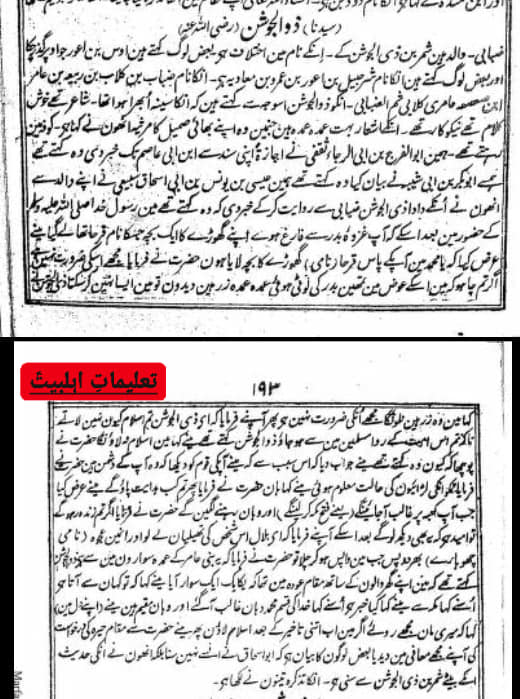 (سیدنا) ذوالجوشن (رضی اللہ عنہ)
ضبابی۔ والد ہین شمر بن ذی الجوشن کے۔ انکے نام مین اختلاف ہو بعض لوگ کہتے ہین اوس بن اعور
اور بعض لوگ کہتے ہین انکا نام شرحبیل بن اعور بن عمرو بن معاویہ ہو۔ انکا نام ضباب بن کلاب بن ربیعہ بن عامر
ابن صعصعہ عامری کلابی ثم الضبابی۔ انکو ذوالجوشن اسوجہ سے کہتے ہین کہ انکا سینہ اُبھرا ہوا تھا۔ شاعر تھے خوش
کلام تھے نیکوکار تھے۔ انکے اشعار بہت عمدہ عمدہ ہین جنمین وہ اپنے بھائی صمیل کا مرثیہ انھون نے کہا ہو۔ کوفہ مین
رہتے تھے۔ ہمین ابوالفرج بن ابی الرجاء ثقفی نے اجازۃً اپنی سند سے ابن ابی عاصم تک خبر دی وہ کہتے تھے
ہمسے ابوبکر بن ابی شیبہ نے بیان کیا وہ کہتے تھے ہمین عیسی بن یونس بن ابی اسحاق سبیعی نے اپنے والد سے
انھون نے اُنکے دادا ذی الجوشن ضبابی سے روایت کر کے خبر دی کہ وہ کہتے تھے مین رسول خدا صلی اللہ علیہ وسلم
کے حضور مین بعد اسکے کہ آپ غزوۂ بدر سے فارغ ہوے اپنے گھوڑے کا ایک بچہ جسکا نام قرحا تھا لے گیا مینے
عرض کیا کہ یا محمد مین آپکے پاس قرحا (نامی) گھوڑے کا بچہ لایا ہون حضرت نے فرمایا مجھے اسکی ضرورت نہین ہے
اگر تم چاہو کہ مین اسکے عوض مین تمھین بدر کی لوٹی ہوئی عمدہ عمدہ زرہین دیدون تو مین ایسا
تعلیماتِ اہلبیتؑ
۱۹۳
کہا مین وہ زرہین نہ لونگا مجھے اُنکی ضرورت نہین ہو پھر آپنے فرمایا کہ ای ذی الجوشن تم اسلام کیون نہین لاتے
تاکہ تم اس امت کے روا سلین مین سے ہو جاؤ ذوالجوشن کہتے تھے مینے کہا مین اسلام نہ لاؤنگا حضرت نے
پوچھا کہ کیون وہ کہتے تھے مینے جواب دیا کہ اس سبب سے کہ مینے آپکی قوم کو دیکھا کہ وہ آپ کے دشمن ہین حضرت نے
فرمایا تمکو انکی لڑائیون کی حالت معلوم ہوئی مینے کہا ہان حضرت نے فرمایا پھر تم کب ہدایت پاؤ گے مینے عرض کیا
جب آپ کعبہ پر غالب آجائینگے (یعنے فتح مکہ کرلینگے) اور وہان رہنے لگین گے حضرت نے فرمایا اگر تم زندہ رہو گے
تو امید ہو کہ یہ بھی دیکھ لوگے بعد اسکے آپنے فرمایا کہ ای بلال اس شخص کی تھیلیان لے لو اور انمین عجوہ (نامی
چھوہارے) بھر دو پس جب مین واپس ہو کر چلا تو حضرت نے فرمایا کہ یہ بنی عامر کے عمدہ سوارون مین سے ہین ذوالجوشن
کہتے تھے کہ مین اپنے گھر والون کے ساتھ مقام عودہ مین تھا کہ یکایک ایک سوار آیا مینے کہا کہ تو کہان سے آتا ہو
اُسنے کہا مکہ سے مینے کہا کیا خبر ہو اُسنے کہا خدا کی قسم محمد وہان غالب آگے اور وہان مقیم ہین مینے (اپنے دل مین)
کہا کہ میری مان مجھے روئے اگر مین اب اتنی تاخیر کے بعد اسلام لاؤن پھر مینے حضرت سے مقام حیرہ کی درخواست
کی آپنے مجھے معافی مین دیدیا بعض لوگون کا بیان ہو کہ ابو اسحاق نے انسے نہین سنا بلکہ انھون نے انکی حدیث
انکے بیٹے شمر بن ذی الجوشن سے سنی ہو۔ انکا تذکرہ تینون نے لکھا ہو۔